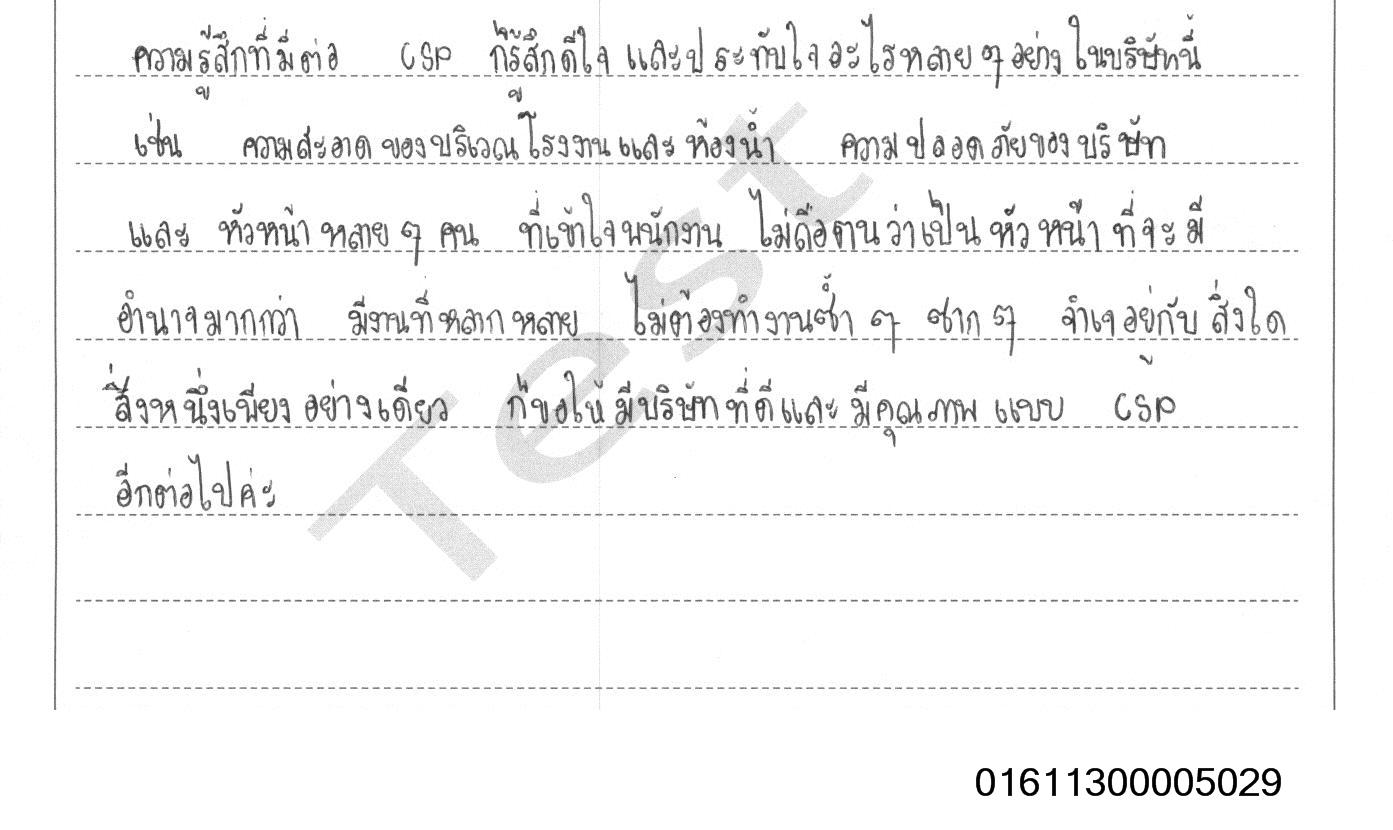 ความรู้สึกที่มีต่อ CSP ก็รู้สึกดีใจ และประทับใจอะไรหลายๆอย่าง ในบริษัทนี้
เช่น ความสะอาด ของบริเวณโรงงานและห้องน้ำ ความปลอดภัยของบริษัท
และ หัวหน้า หลายๆ คน ที่เข้าใจพนักงาน ไม่ถือตนว่าเป็น หัวหน้า ที่จะมี
อำนาจมากกว่า มีงานที่หลากหลาย ไม่ต้องทำงานซ้ำๆ ซากๆ จำเจอยู่กับ สิ่งใด
สิ่งหนึ่งเพียงอย่างเดียว ก็ขอให้มีบริษัทที่ดีและมีคุณภาพ แบบ CSP
อีกต่อไปค่ะ
Test
01611300005029